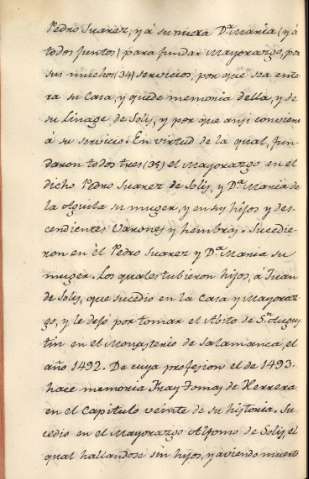 Pedro Suarez, y á su nuera D.ª Maria (y á
todos juntos) para fundar Mayorazgo, por
sus muchos (34) servicios, por que sea ente
ra su Casa, y quede memoria della, y de
su linage de Solis, y por que ansi conviene
á su servicio. En virtud de la qual, fun
daron todos tres (35) el Mayorazgo en el
dicho Pedro Suarez de Solis, y D.ª Maria de
la Aguila su muger, y en sus hijos y des-
cendientes Varones y hembras. Sucedie
ron en él Pedro Suarez y D.ª Maria su
muger. Los quales tubieron hijos, á Juan
de Solis, que sucedio en la Casa y Mayoraz
go, y le dejó por tomar el Abito de S.n Agus
tin en el Monasterio de Salamanca, el
año 1492. De cuya profesion el de 1493.
hace memoria Fray Tomas de Herrera
en el Capitulo veinte de su historia. Su
cedio en el Mayorazgo Alfonso de Solis, el
qual hallandose sin hijos, y aviendo muerto